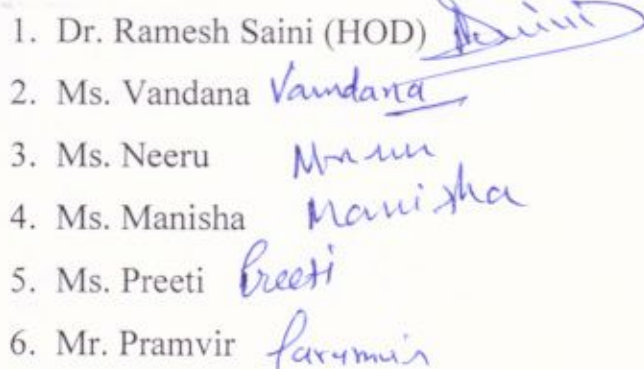 1. Dr. Ramesh Saini (HOD) Saini
2. Ms. Vandana Vandana
3. Ms. Neeru
4. Ms. Manisha Manisha
5. Ms. Preeti Preeti
6. Mr. Pramvir